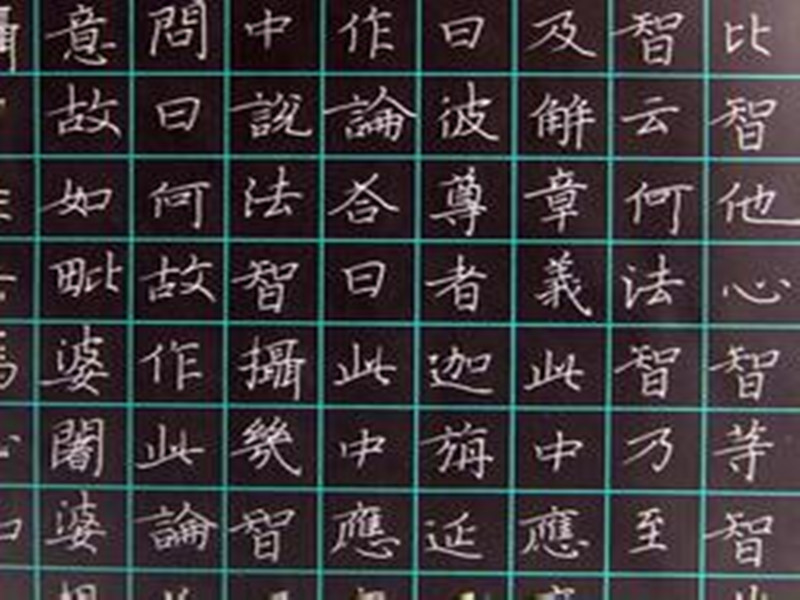 比智他心智等智
智云何法智乃至
及解章義此中應
曰彼尊者迦旃延
作論荅曰此中應
中說法智攝幾智
問曰何故作此論
意故如毗婆闍婆